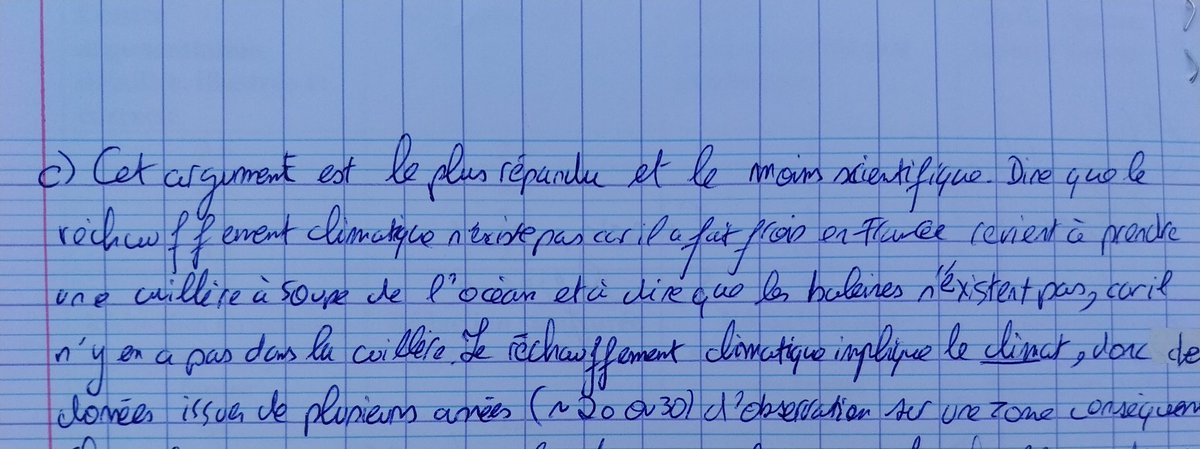 c) Cet argument est le plus répandu et le moins scientifique. Dire que le
réchauffement climatique n'existe pas car il a fait froid en France revient à prendre
une cuillère à soupe de l'océan et à dire que les baleines n'existent pas, car il
n'y en a pas dans la cuillère. Le réchauffement climatique implique le climat, donc de
données issues de plusieurs années (~20 ou 30) d'observation sur une zone conséquen